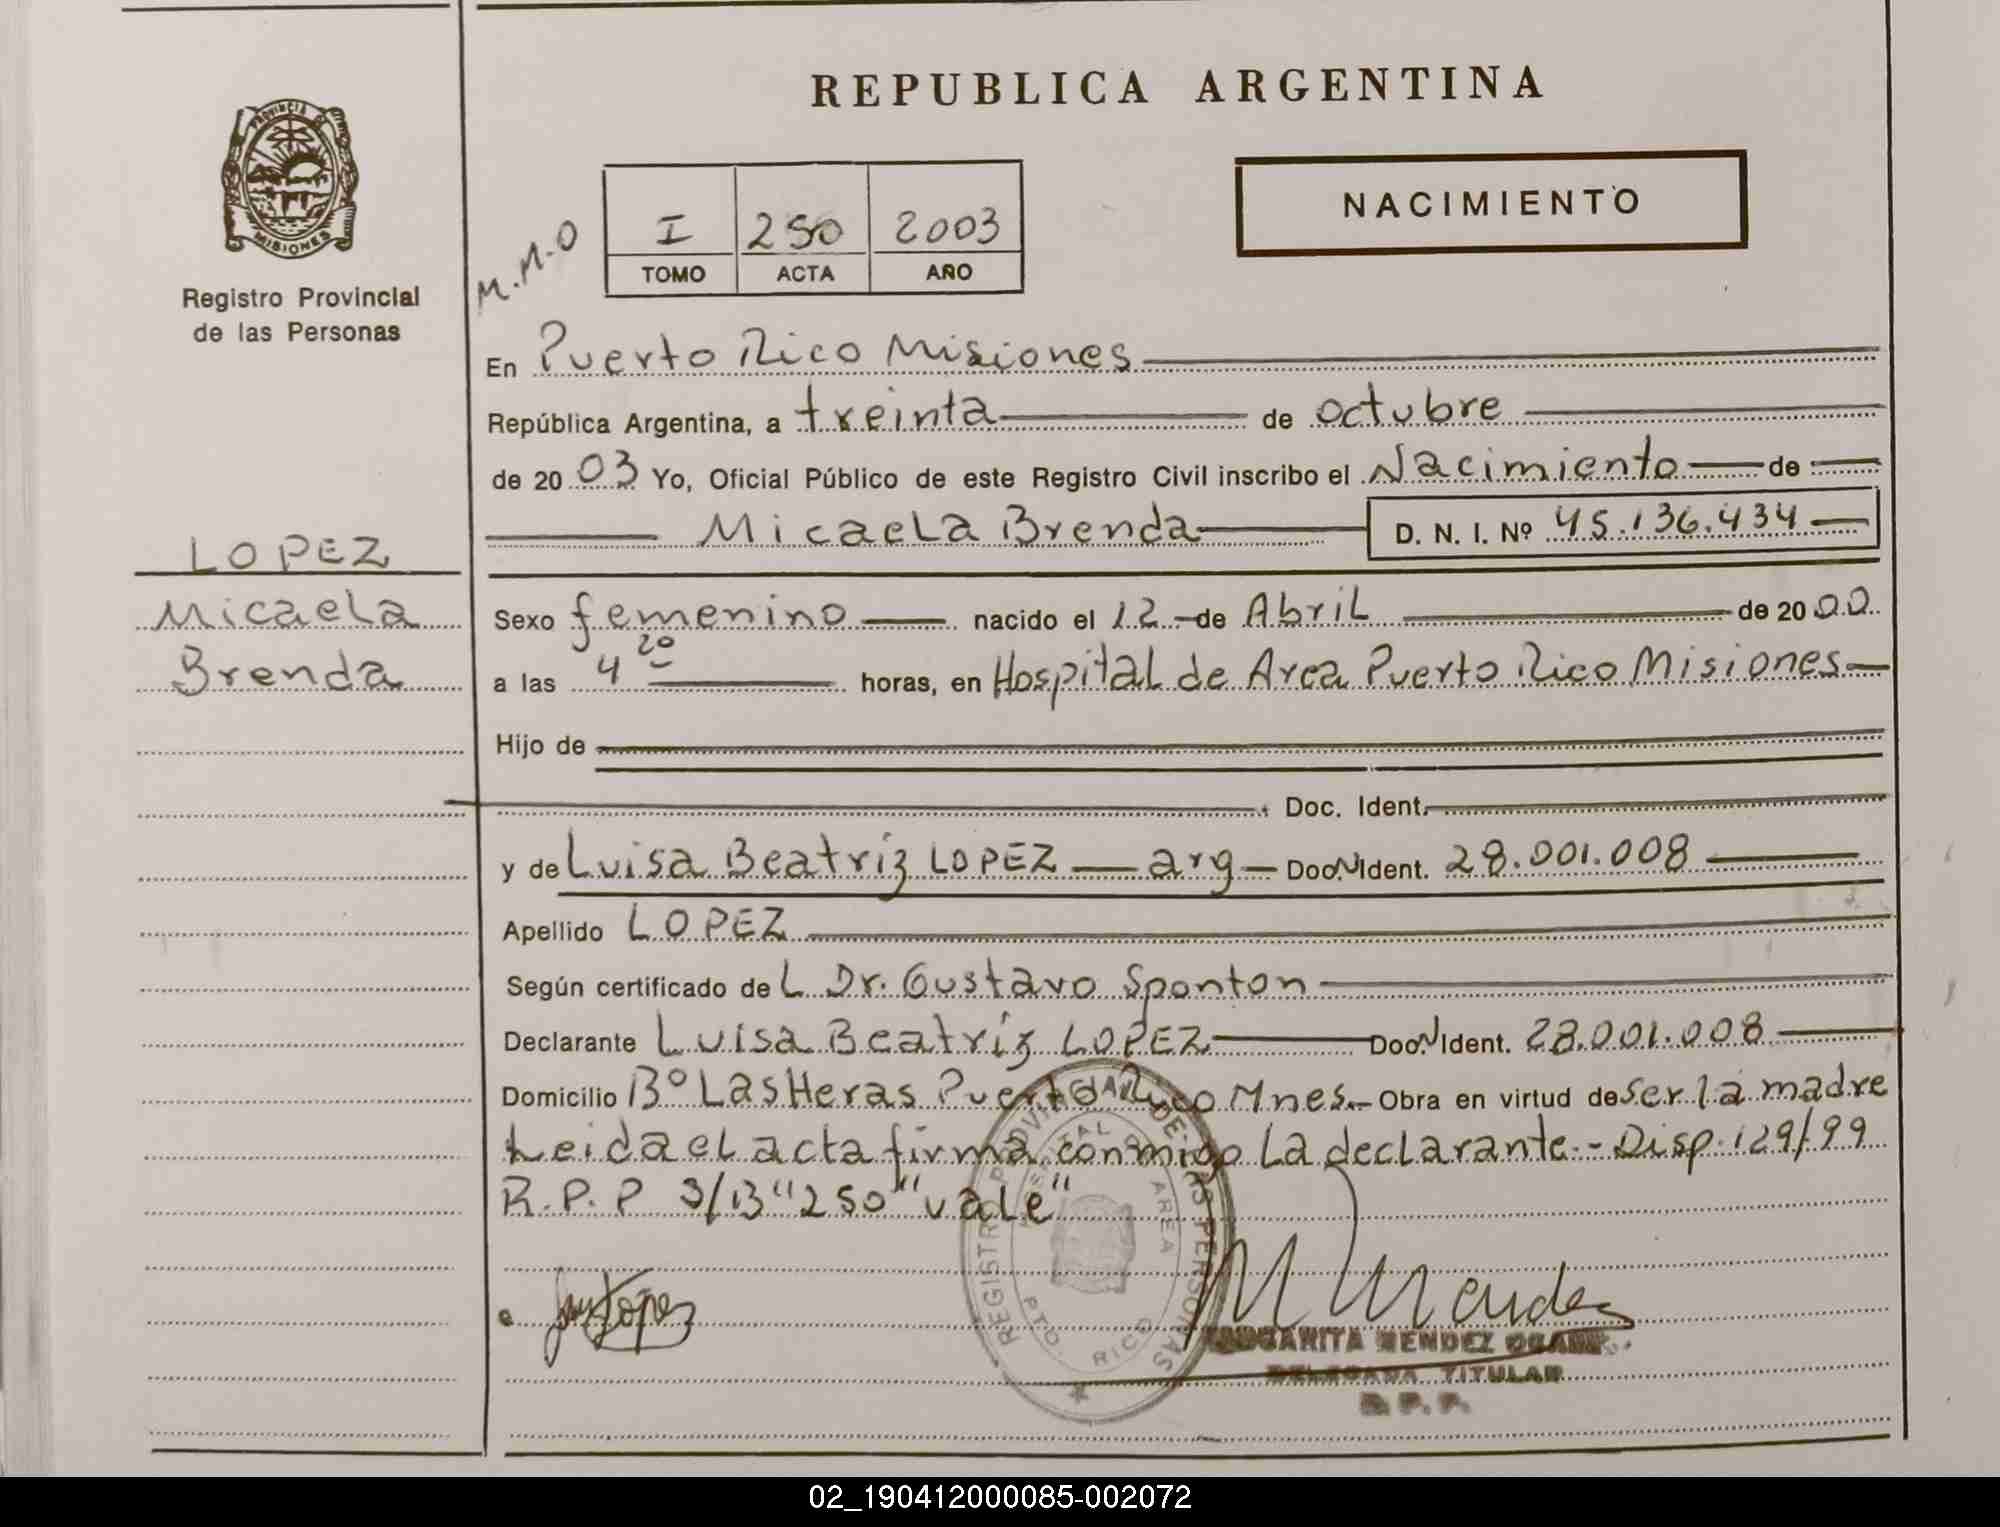 REPUBLICA ARGENTINA
PROVINCIA DE
MISIONES
Registro Provincial
de las Personas
M.M.O
I 250 2003
TOMO ACTA AÑO
NACIMIENTO
LOPEZ
Micaela
Brenda
En Puerto Rico Misiones
República Argentina, a treinta de octubre
de 2003 Yo, Oficial Público de este Registro Civil inscribo el Nacimiento de
Micaela Brenda D. N. I. Nº 45.136.434
Sexo femenino nacido el 12 de Abril de 2000
a las 4 20 horas, en Hospital de Area Puerto Rico Misiones
Hijo de
Doc. Ident.
y de Luisa Beatríz LOPEZ - arg - Doc. Ident. 28.001.008
Apellido LOPEZ
Según certificado de L Dr. Gustavo Sponton
Declarante Luisa Beatríz LOPEZ Doc. Ident. 28.001.008
Domicilio Bº Las Heras Puerto Rico Mnes. Obra en virtud de ser la madre
Leida el acta firma conmigo la declarante.- Disp. 129/99
R.P.P S/B "250" vale"
REGISTRO PROVINCIAL DE LAS PERSONAS
AREA
PTO. RICO
Lopez
M Mendez
MARGARITA MENDEZ
DELEGADA TITULAR
R. P. P.
02_190412000085-002072